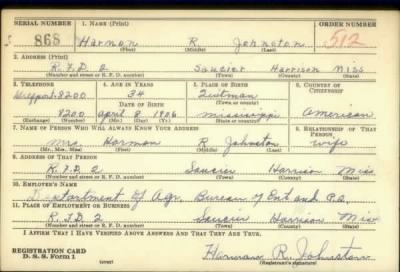 SERIAL NUMBER 1. NAME (Print) ORDER NUMBER
S 868 Harmon R. Johnston 512
(First) (Middle) (Last)
2. ADDRESS (Print)
R.F.D. 2 Saucier Harrison Miss
(Number and street or R. F. D. number) (Town) (County) (State)
3. TELEPHONE 4. AGE IN YEARS 5. PLACE OF BIRTH 6. COUNTRY OF CITIZENSHIP
Gulfport-8200 34
DATE OF BIRTH (Town or county)
8200 April 8 1906 Mississippi American
(Exchange) (Number) (Mo.) (Day) (Yr.) (State or country)
7. NAME OF PERSON WHO WILL ALWAYS KNOW YOUR ADDRESS 8. RELATIONSHIP OF THAT PERSON
Mrs. Harmon R Johnston wife
(Mr., Mrs., Miss) (First) (Middle) (Last)
9. ADDRESS OF THAT PERSON
R.F.D. 2 Saucier Harrison Miss.
(Number and street or R. F. D. number) (Town) (County) (State)
10. EMPLOYER'S NAME
Department of Agr. Bureau of Ent and P.Q.
11. PLACE OF EMPLOYMENT OR BUSINESS
R.F.D. 2 Saucier Harrison Miss
(Number and street or R. F. D. number) (Town) (County) (State)
I AFFIRM THAT I HAVE VERIFIED ABOVE ANSWERS AND THAT THEY ARE TRUE.
REGISTRATION CARD
D. S. S. Form 1 (over) Harmon R. Johnston
(Registrant's signature)